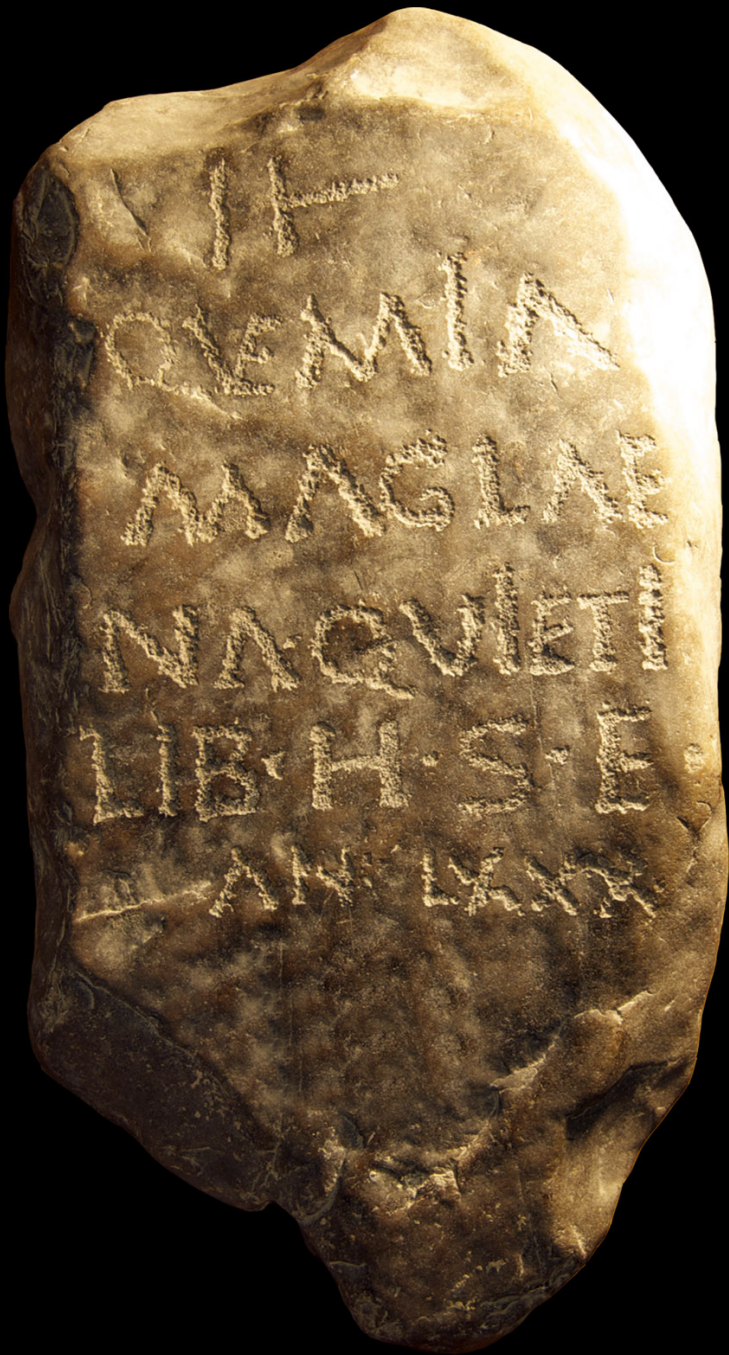 VI⊢
QVEMIA
MAGLAE
NA·QVIETI
LIB·H·S·E·
AN LXXX